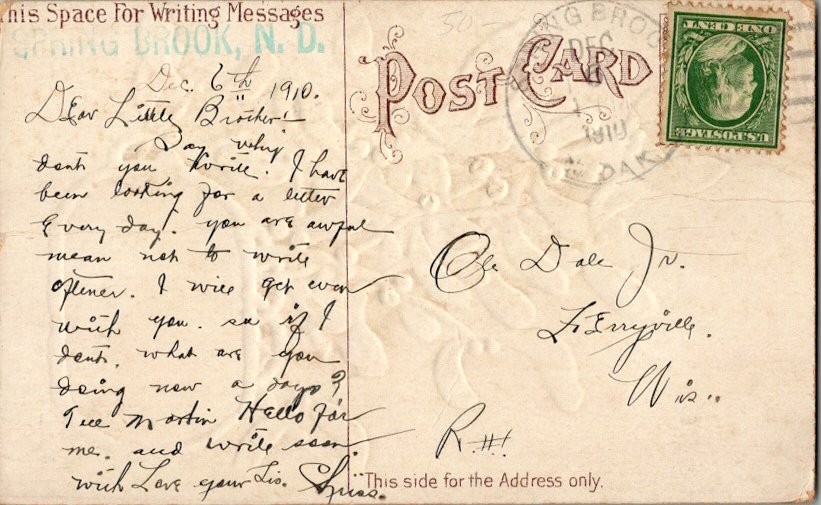 This Space For Writing Messages
SPRING BROOK, N. D.
Dec. 6th 1910.
Dear Little Brother!
Say why
dont you write. I have
been looking for a letter
Every day. you are awful
mean not to write
oftener. I will get even
with you. see if I
dont. what are you
doing now a days?
Tell Martin Hello for
me. and write soon
with Love your Sis.
POST CARD
SPRING BROOK
DEC
1910
N. DAK.
ONE CENT
U.S. POSTAGE
50-
Ole Dale Jr.
Ferryville.
Wis.
R.
This side for the Address only.